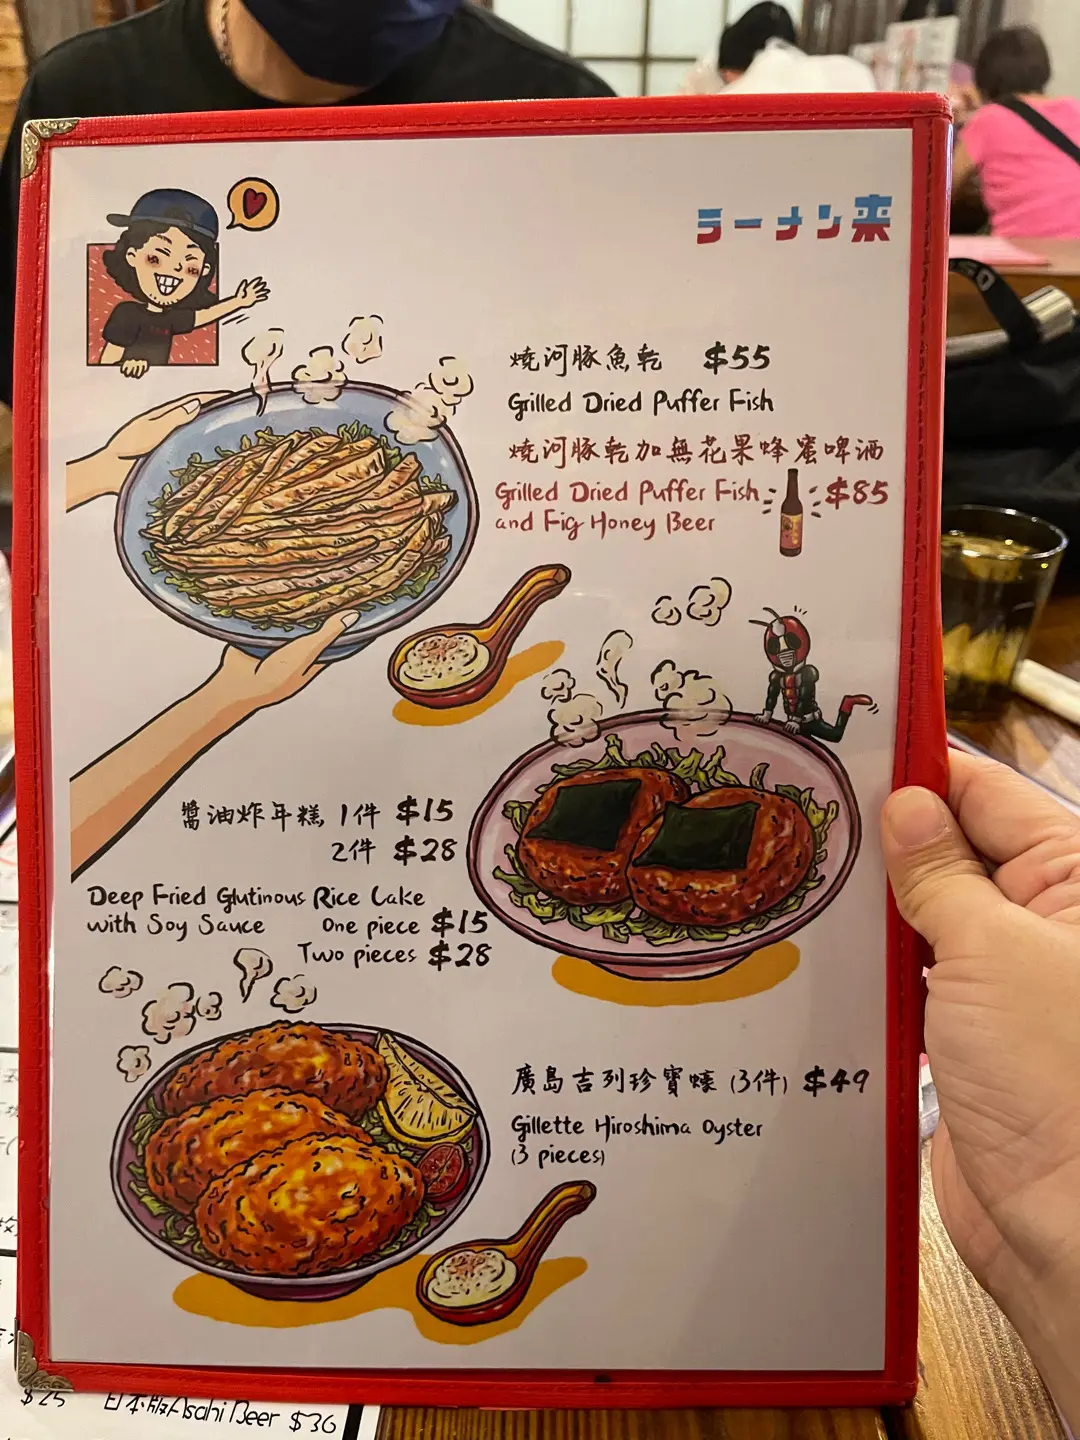 ラーメン来
燒河豚魚乾 $55
Grilled Dried Puffer Fish
燒河豚乾加無花果蜂蜜啤酒
Grilled Dried Puffer Fish $85
and Fig Honey Beer
醬油炸年糕 1件 $15
2件 $28
Deep Fried Glutinous Rice Cake
with Soy Sauce One piece $15
Two pieces $28
廣島吉列珍寶蠔 (3件) $49
Gillette Hiroshima Oyster
(3 pieces)
$25 日本版Asahi Beer $36